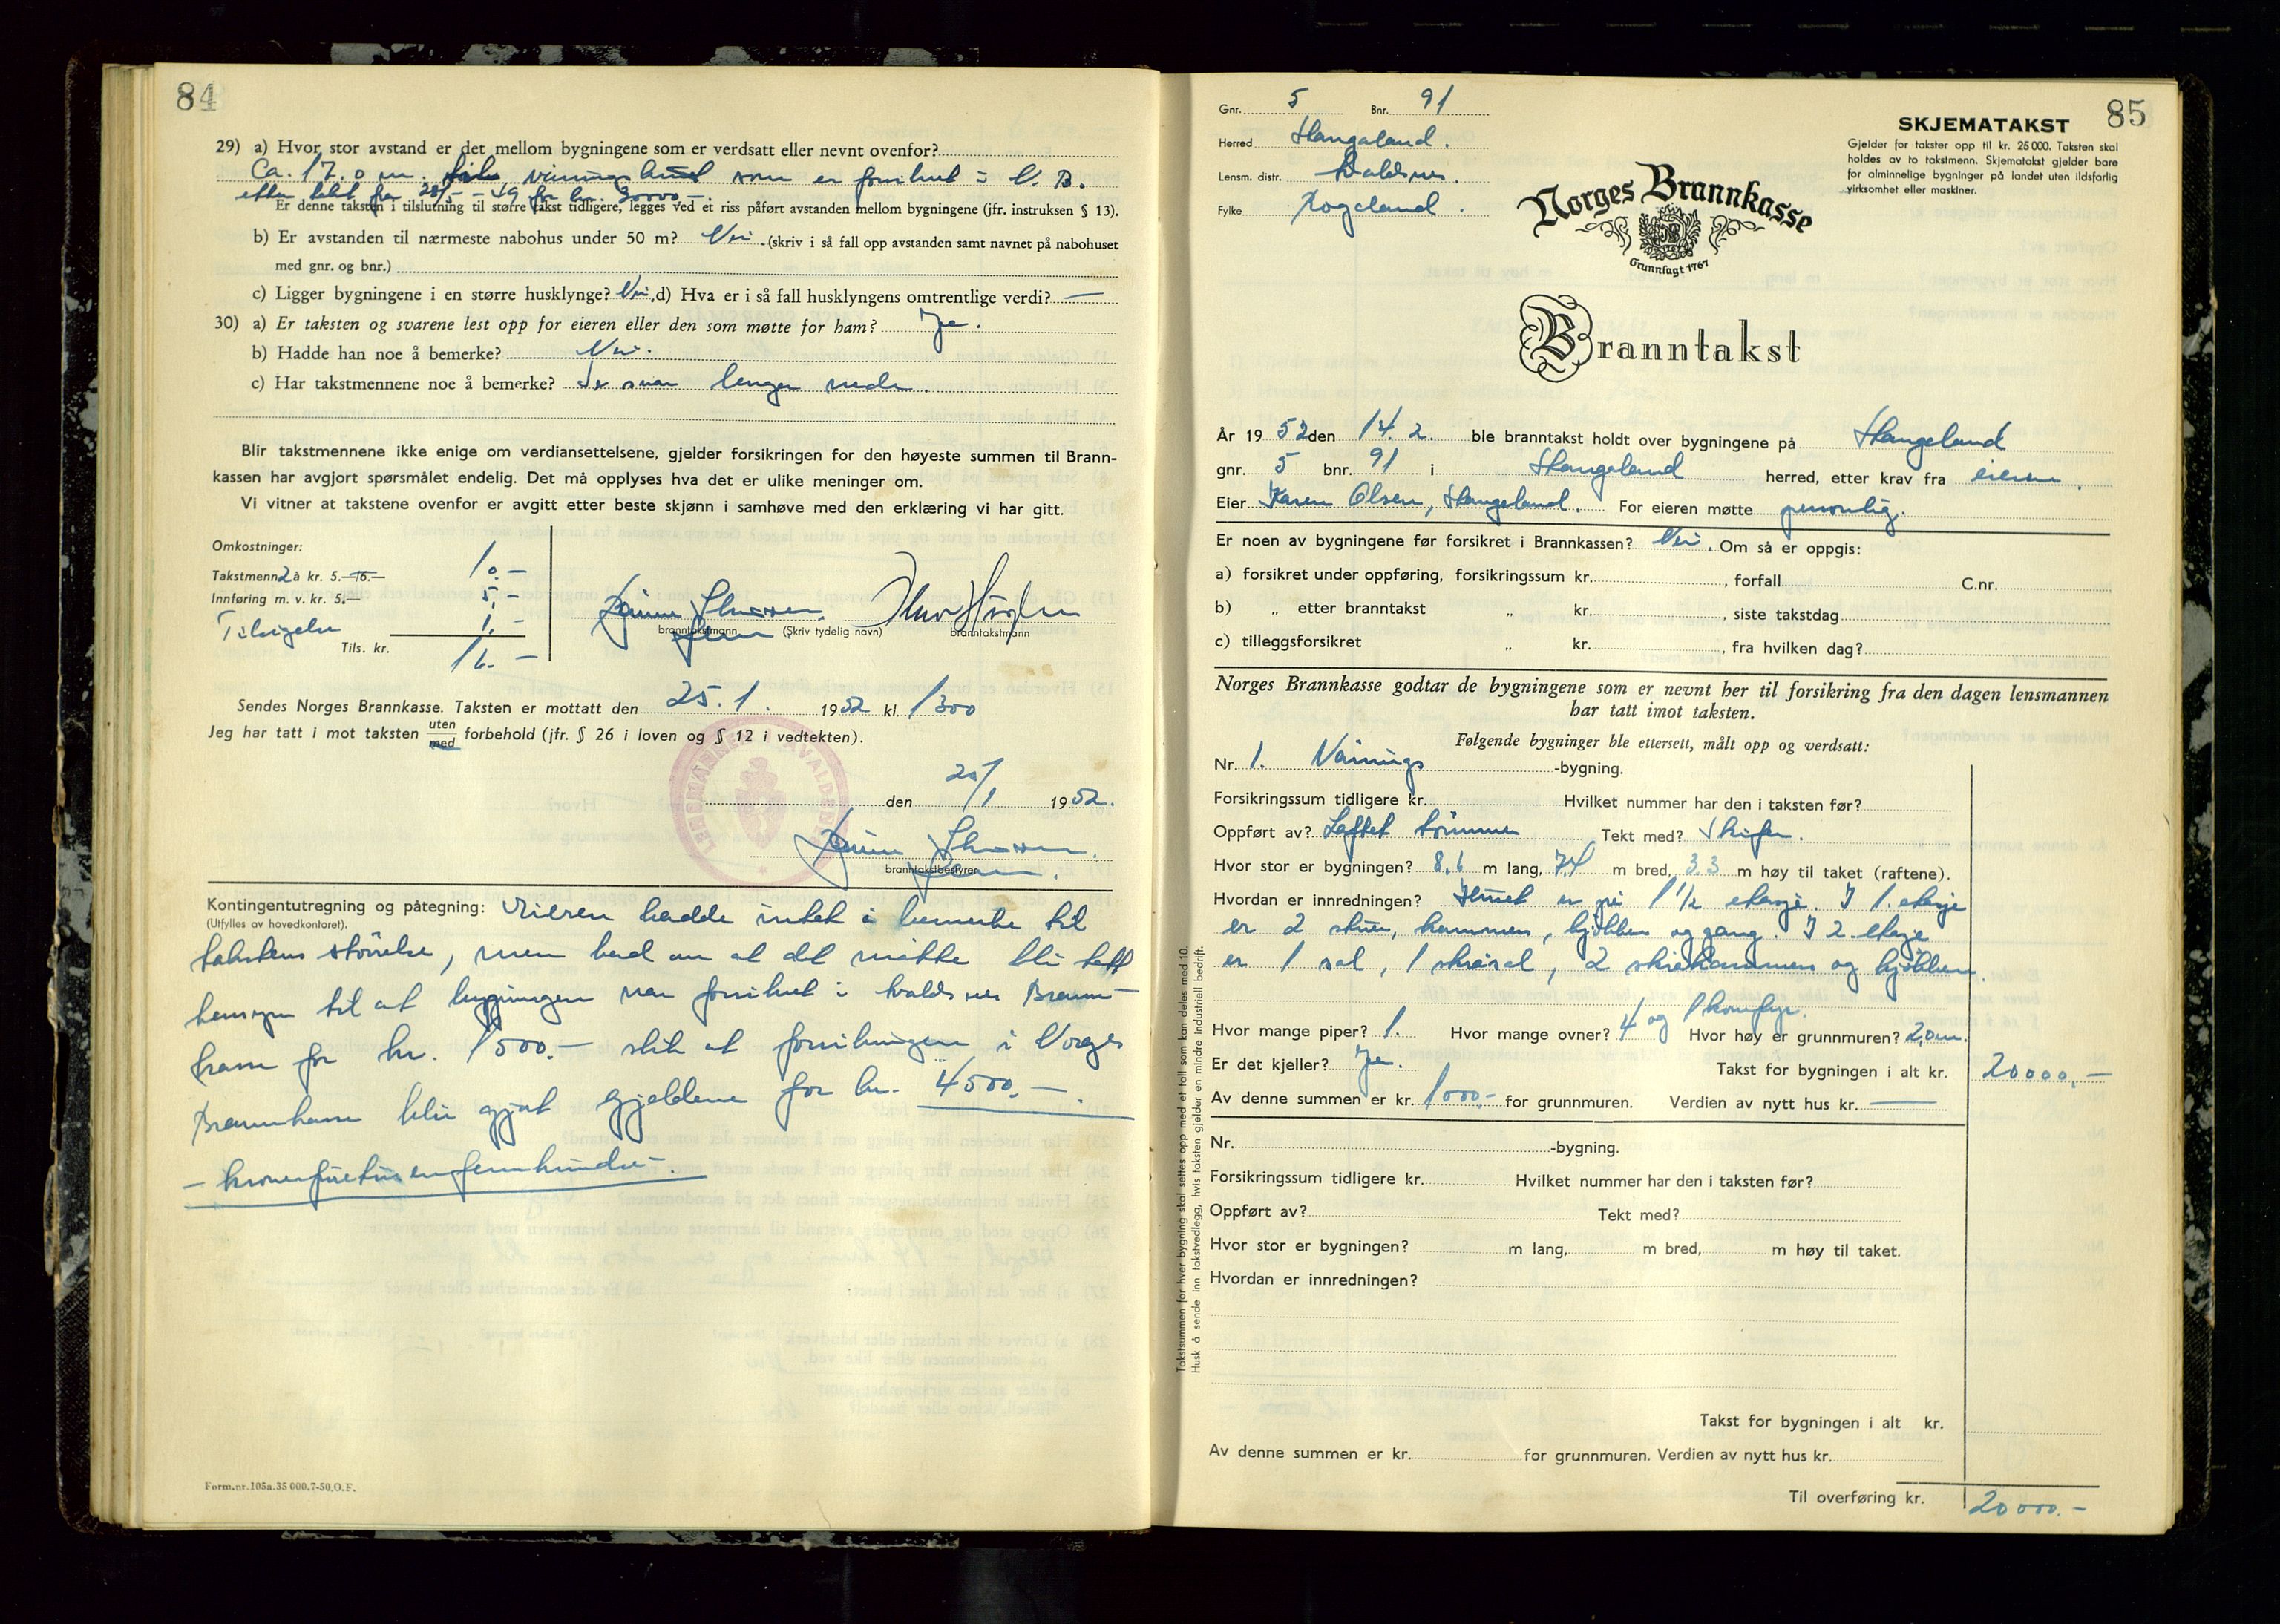 84
29) a) Hvor stor avstand er det mellom bygningene som er verdsatt eller nevnt ovenfor?
Ca. 17.0 m. våningshus som er forsikret i N. B.
etter takst fra 28/5 - 49 for kr. 30000.-
Er denne taksten i tilslutning til større takst tidligere, legges ved et riss påført avstanden mellom bygningene (jfr. instruksen § 13).
b) Er avstanden til nærmeste nabohus under 50 m? Nei. (skriv i så fall opp avstanden samt navnet på nabohuset
med gnr. og bnr.)
c) Ligger bygningene i en større husklynge? Nei, d) Hva er i så fall husklyngens omtrentlige verdi? —
30) a) Er taksten og svarene lest opp for eieren eller den som møtte for ham? Ja.
b) Hadde han noe å bemerke? Nei.
c) Har takstmennene noe å bemerke? Se svar lenger nede.
Blir takstmennene ikke enige om verdiansettelsene, gjelder forsikringen for den høyeste summen til Brann-
kassen har avgjort spørsmålet endelig. Det må opplyses hva det er ulike meninger om.
Vi vitner at takstene ovenfor er avgitt etter beste skjønn i samhøve med den erklæring vi har gitt.
Omkostninger:
Takstmenn 2 à kr. 5.— 10.— 10.—
Innføring m. v. kr. 5.— 5.—
1.—
Tils. kr. 16.—
branntakstmann (Skriv tydelig navn) branntakstmann
Sendes Norges Brannkasse. Taksten er mottatt den 25.1. 1952 kl. 1300
Jeg har tatt i mot taksten uten med forbehold (jfr. § 26 i loven og § 12 i vedtekten).
den 25/1 1952.
branntakstbestyrer
Kontingentutregning og påtegning: Eieren hadde intet å bemerke til
(Utfylles av hovedkontoret).
takstens størrelse, men bad om at det måtte bli tatt
hensyn til at bygningen var forsikret i Avaldsnes Brann-
kasse for kr. 1500.- slik at forsikringen i Norges
Brannkasse blir gjort gjeldene for kr. 4500.-
- kronerfiretusenfemhundre -.
Form.nr.105a.35 000.7-50.O.F.
85
Gnr. 5 Bnr. 91
Herred Skangaland.
Lensm. distr. Avaldsnes.
Fylke Rogaland.
SKJEMATAKST
Gjelder for takster opp til kr. 25 000. Taksten skal
holdes av to takstmenn. Skjematakst gjelder bare
for alminnelige bygninger på landet uten ildsfarlig
virksomhet eller maskiner.
Norges Brannkasse
Grunnlagt 1767
Branntakst
År 1952 den 14. 2. ble branntakst holdt over bygningene på Stangeland
gnr. 5 bnr. 91 i Stangaland herred, etter krav fra eieren.
Eier Karen Olsen, Stangeland. For eieren møtte personlig.
Er noen av bygningene før forsikret i Brannkassen? Nei. Om så er oppgis:
a) forsikret under oppføring, forsikringssum kr. , forfall C.nr.
b) „ etter branntakst „ kr. , siste takstdag
c) tilleggsforsikret „ kr. , fra hvilken dag?
Norges Brannkasse godtar de bygningene som er nevnt her til forsikring fra den dagen lensmannen
har tatt imot taksten.
Følgende bygninger ble ettersett, målt opp og verdsatt:
Nr. 1. Vånings -bygning.
Forsikringssum tidligere kr. Hvilket nummer har den i taksten før?
Oppført av? Laftet tømmer Tekt med? Skifer.
Hvor stor er bygningen? 8,6 m lang, 7,4 m bred, 3.3 m høy til taket (raftene).
Hvordan er innredningen? Huset er på 1 1/2 etasje. I 1. etasje
er 2 stuer, kammer, kjøkken og gang. I 2. etasje
er 1 sal, 1 skråsal, 2 skråkammer og kjøkken.
Hvor mange piper? 1. Hvor mange ovner? 4 og 1 komfyr. Hvor høy er grunnmuren? 2,0 m.
Er det kjeller? Ja. Takst for bygningen i alt kr. 20000.—
Av denne summen er kr. 1000.- for grunnmuren. Verdien av nytt hus kr. —
Nr. -bygning.
Forsikringssum tidligere kr. Hvilket nummer har den i taksten før?
Oppført av? Tekt med?
Hvor stor er bygningen? m lang, m bred, m høy til taket.
Hvordan er innredningen?
Takst for bygningen i alt kr.
Av denne summen er kr. for grunnmuren. Verdien av nytt hus kr.
Til overføring kr. 20000.-
Takstsummen for hver bygning skal settes opp med et tall som kan deles med 10.
Husk å sende inn takstvedlegg, hvis taksten gjelder en mindre industriell bedrift.